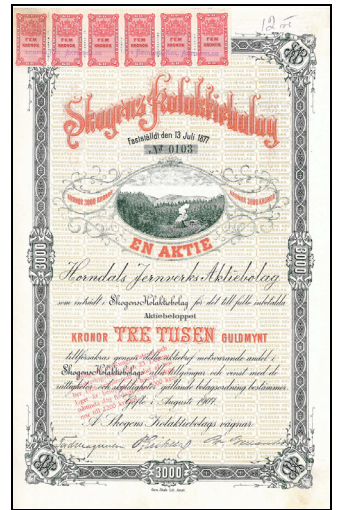 FEM KRONOR FEM KRONOR FEM KRONOR FEM KRONOR FEM KRONOR FEM KRONOR
Skogens Kolaktiebolag
Fastställdt den 13 Juli 1877
No 0103
KRONOR 3000 KRONOR
KRONOR 3000 KRONOR
EN AKTIE
Horndals Jernverks Aktiebolag
som inträdt i Skogens Kolaktiebolag för det till fullo inbetalda
Aktiebeloppet
KRONOR TRE TUSEN GULDMYNT
tillförsäkras genom detta aktiebref motsvarande andel i
Skogens Kolaktiebolags alla tillgångar och vinst med de
rättigheter och skyldigheter gällande bolagsordning bestämmer.
Gefle i Augusti 1907.
Å Skogens Kolaktiebolags vägnar
3000
3000
3000